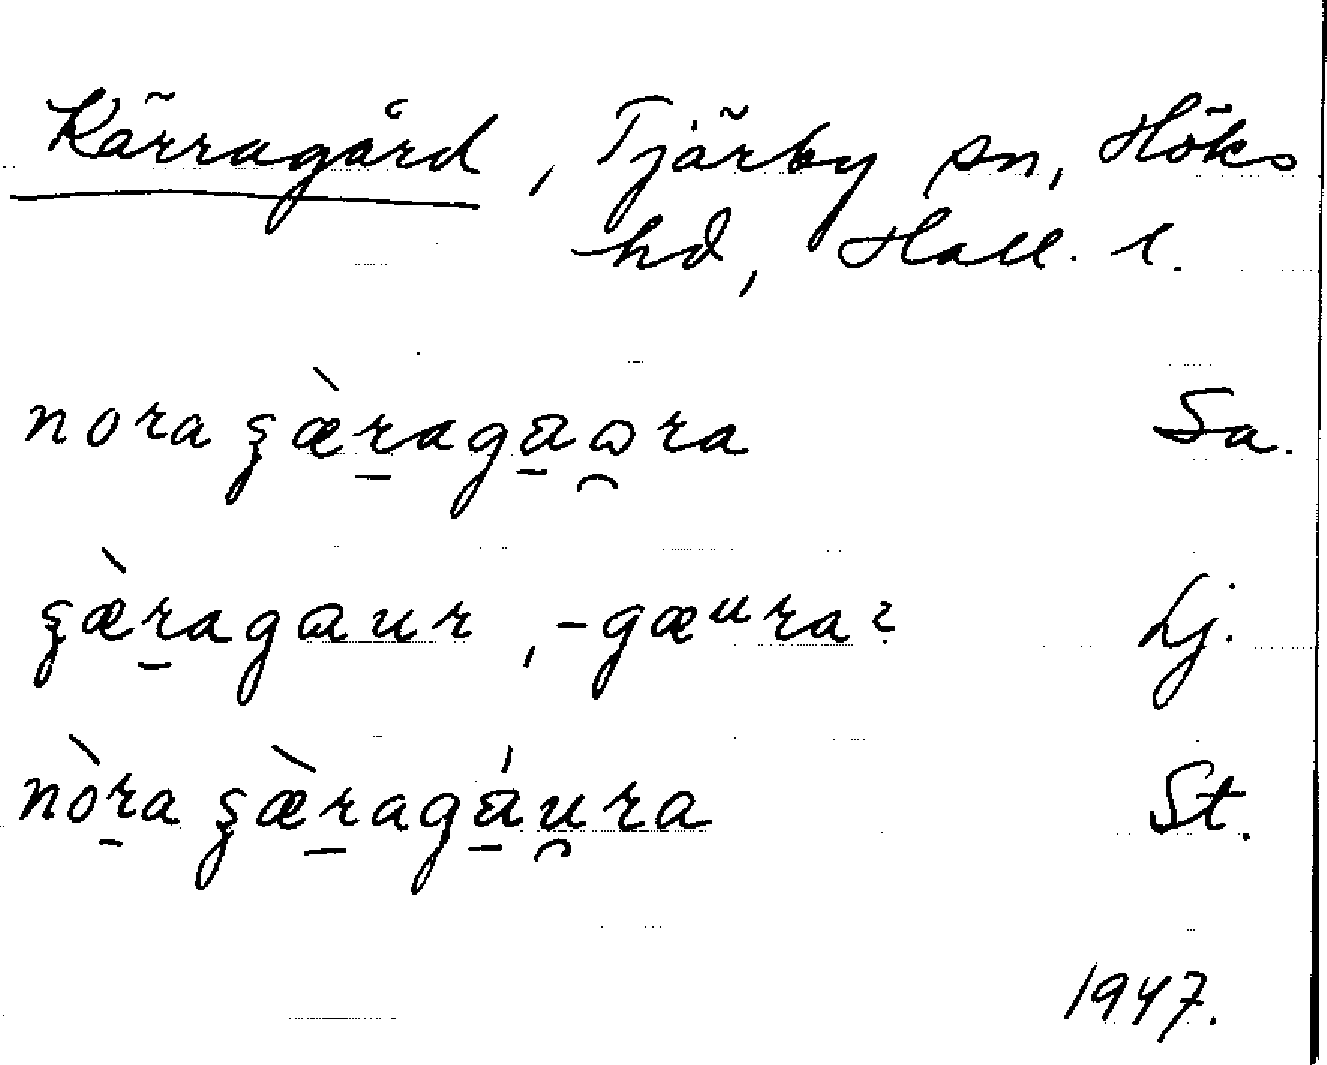 Kärragård, Tjärby sn, Höks
hd, Hall. l.
nora ʂæ̀r̠aga̠ɷ̯ra Sa.
ʂæ̀r̠agɑur, -gæᵘra? Lj.
nò̠ra ʂæ̀r̠agá̠u̯ra St.
1947.